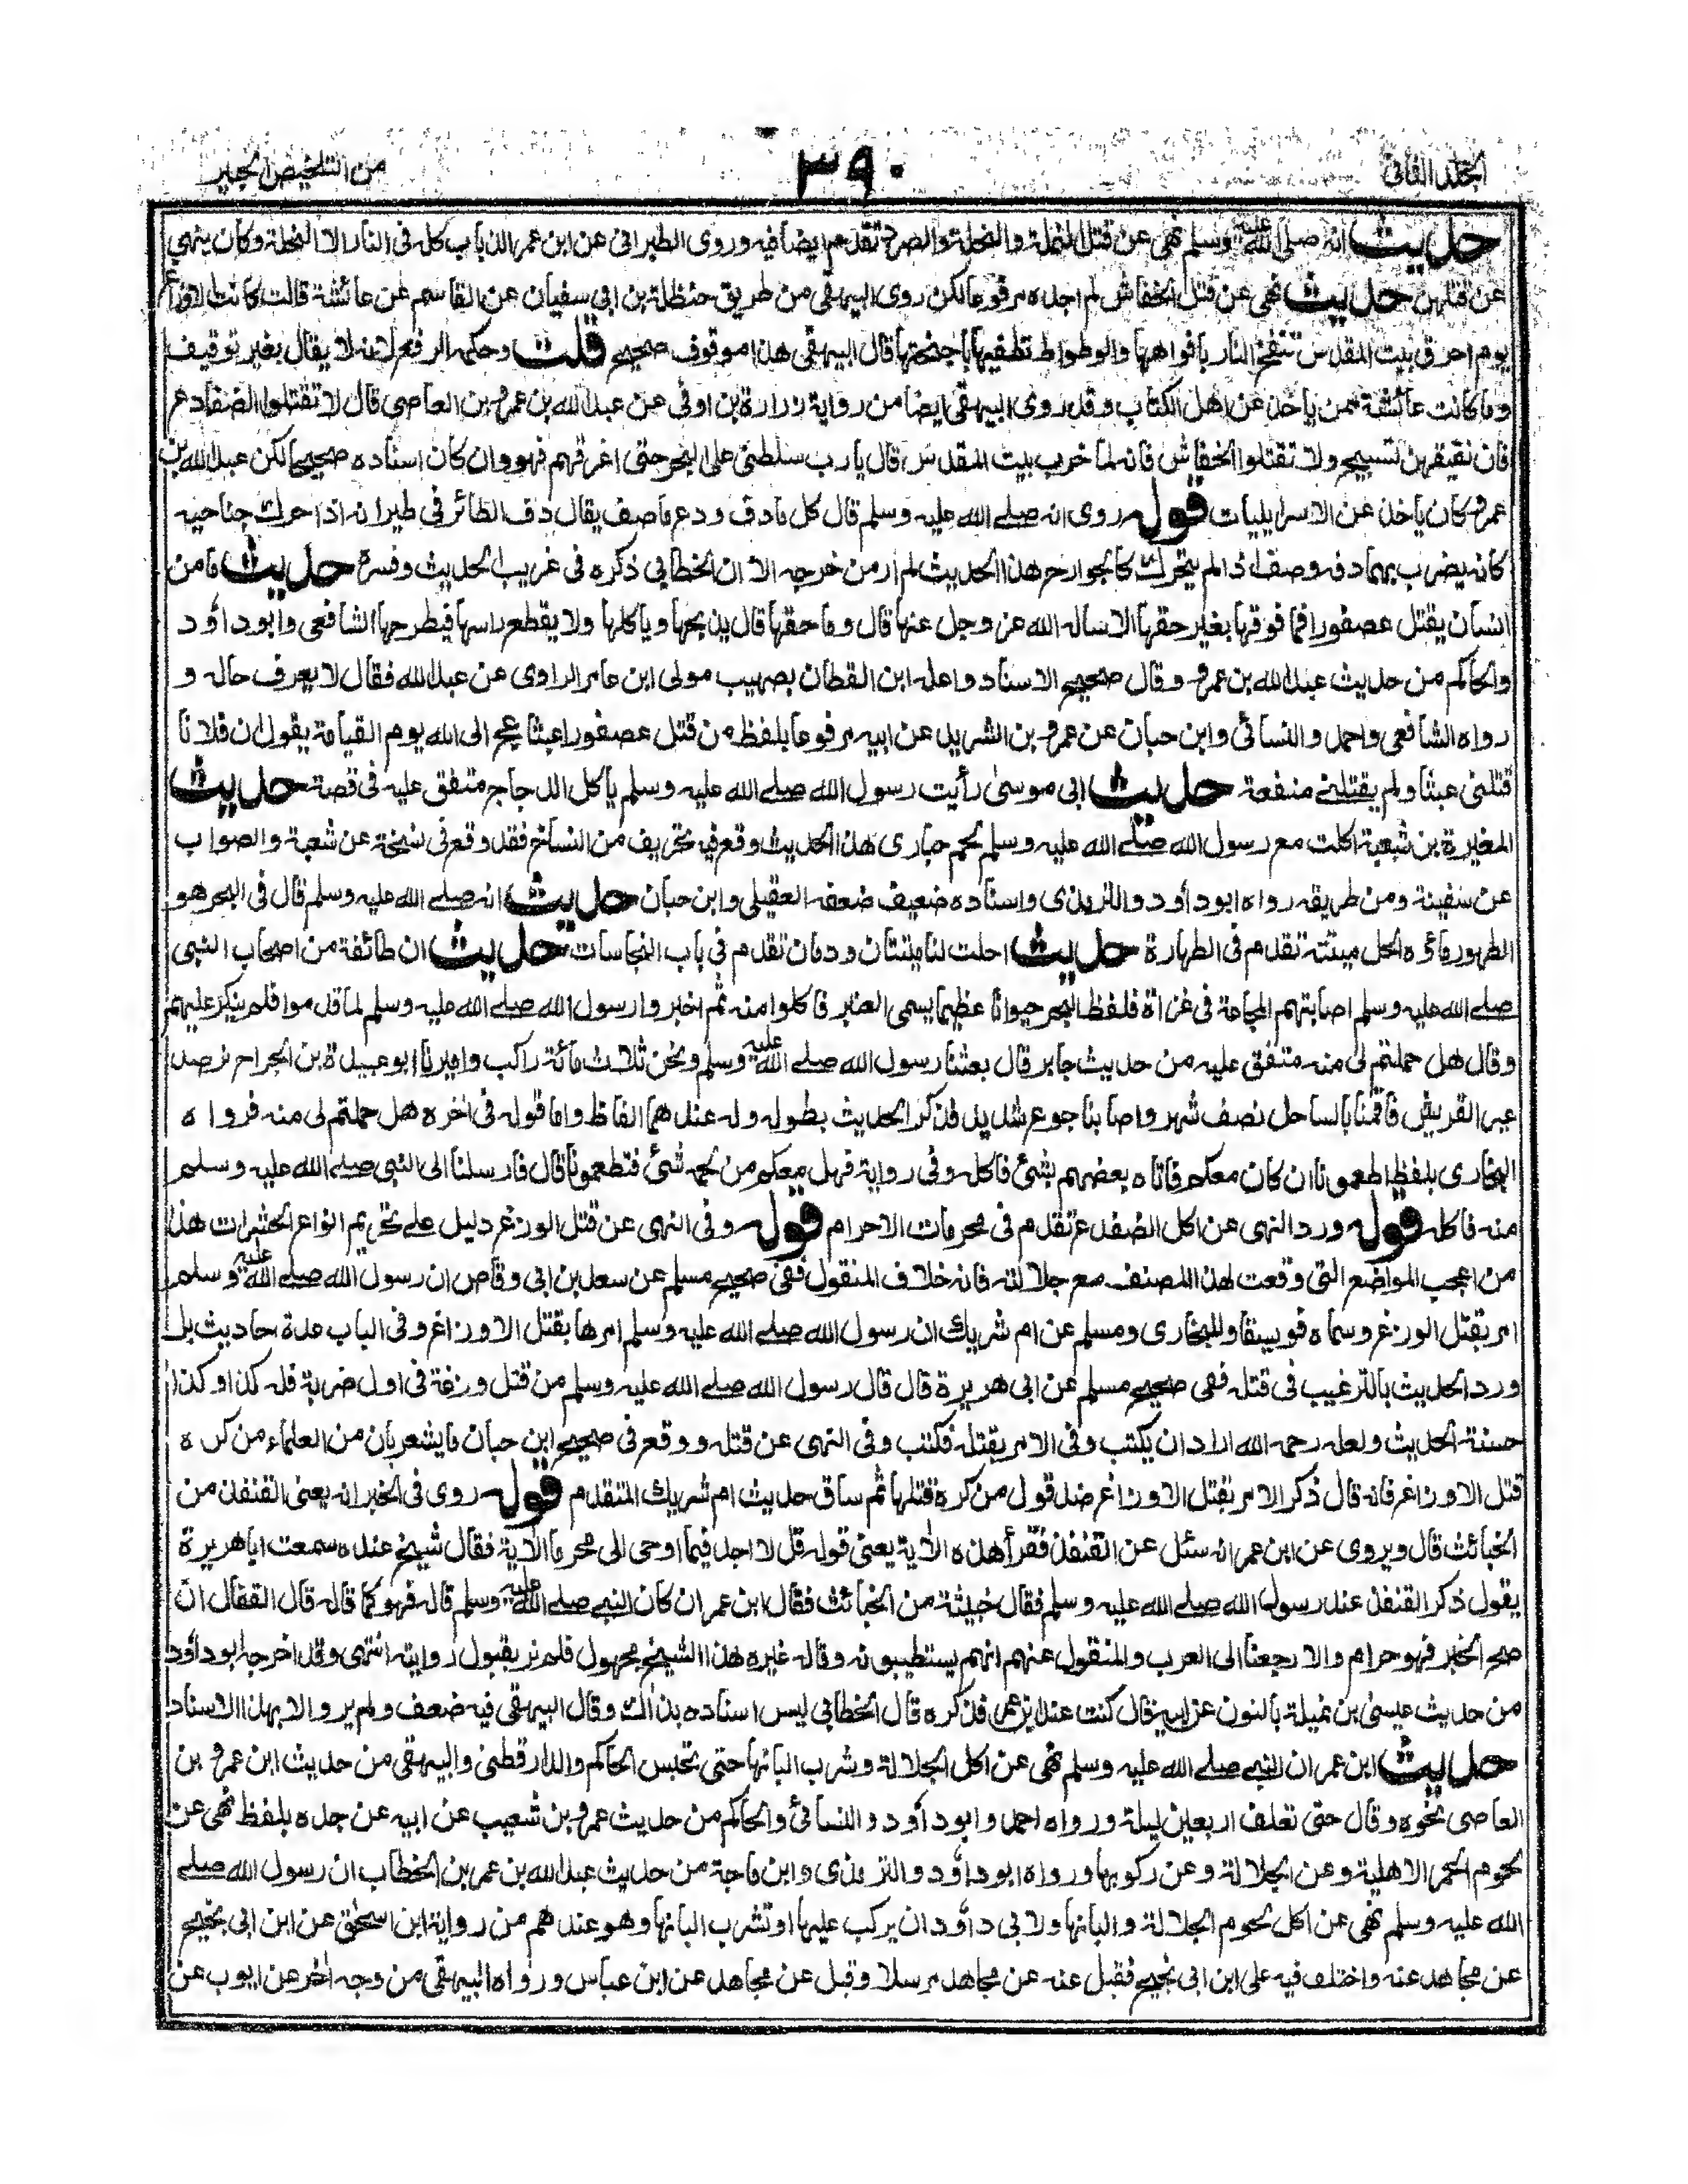 المجلد الثاني
٣٩٠
من التلخيص الحبير
حديث انه صلى الله عليه وسلم نهى عن قتل النملة والنحلة والصرد تقدم ايضا فيه وروى الطبرانى عن ابن عمر الذباب كله فى النار الا النحلة وكان ينهى
عن قتلهن حديث نهى عن قتل الخفاش لم اجده مرفوعا لكن روى البيهقى من طريق حنظلة بن ابى سفيان عن القاسم عن عائشة قالت كانت الاوزاغ
يوم احرق بيت المقدس تنفخ النار بافواهها والوطواط تطفيها باجنحتها قال البيهقى هذا موقوف صحيح قلت وحكمه الرفع لانه لا يقال بغير توقيف
وما كانت عائشة ممن ياخذ عن اهل الكتاب وقد روى البيهقى ايضا من رواية زرارة بن اوفى عن عبد الله بن عمرو بن العاصى قال لا تقتلوا الضفادع
فان نقيقهن تسبيح ولا تقتلوا الخفاش فانه لما خرب بيت المقدس قال يا رب سلطنى على البحر حتى اغرقهم فهو وان كان اسناده صحيحا لكن عبد الله بن
عمرو كان ياخذ عن الاسرايليات قوله روى انه صلے الله عليه وسلم قال كل ما دف ودع ما صف يقال دف الطائر فى طيرانه اذا حرك جناحيه
كانه يضرب بهما دفه وصف اذا لم يتحرك كالجوارح هذا الحديث لم ار من خرجه الا ان الخطابي ذكره فى غريب الحديث وفسره حديث ما من
انسان يقتل عصفورا فما فوقها بغير حقها الا ساله الله عز وجل عنها قال وما حقها قال يذبحها وياكلها ولا يقطع راسها فيطرحها الشافعى وابو داؤد
والحاكم من حديث عبد الله بن عمرو وقال صحيح الاسناد واعله ابن القطان بصهيب مولى ابن عامر الراوى عن عبد الله فقال لا يعرف حاله و
رواه الشافعى واحمد والنسائى وابن حبان عن عمرو بن الشريد عن ابيه مرفوعا بلفظ من قتل عصفورا عبثا عج الى الله يوم القيامة يقول ان فلانا
قتلنى عبثا ولم يقتلنے منفعة حديث ابى موسىٰ رأيت رسول الله صلے الله عليه وسلم ياكل الدجاج متفق عليه فى قصة حديث
المغيرة بن شعبة اكلت مع رسول الله صلے الله عليه وسلم لحم حبارى هذا الحديث وقع فيه تحريف من النساخ فقد وقع فى نسخة عن شعبة والصواب
عن سفينة ومن طريقه رواه ابو داؤد والترمذى واسناده ضعيف ضعفه العقيلى وابن حبان حديث انه صلے الله عليه وسلم قال فى البحر هو
الطهور ماؤه الحل ميتته تقدم فى الطهارة حديث احلت لنا ميتتان ودمان تقدم فى باب النجاسات حديث ان طائفة من اصحاب النبى
صلے الله عليه وسلم اصابتهم المجاعة فى غزاة فلفظ البحر حيوانا عظيما يسمى العنبر فاكلوا منه ثم اخبروا رسول الله صلے الله عليه وسلم لما قدموا فلم ينكر عليهم
وقال هل حملتم لى منه متفق عليه من حديث جابر قال بعثنا رسول الله صلے الله عليه وسلم ونحن ثلاث مائة راكب واميرنا ابو عبيدة بن الجراح نرصد
عير القريش فاقمنا بالساحل نصف شهر واصابنا جوع شديد فذكر الحديث بطوله وله عندهما الفاظ واما قوله فى اخره هل حملتم لى منه فرواه
البخارى بلفظ اطعمونا ان كان معكم فاتاه بعضهم بشئ فاكله وفى رواية فهل معكم من لحمه شئ فتطعمونا قال فارسلنا الى النبى صلے الله عليه وسلم
منه فاكله قوله ورد النهى عن اكل الضفدع تقدم فى محرمات الاحرام قوله وفى النهى عن قتل الوزغ دليل علے تحريم انواع الحشرات هذا
من اعجب المواضع التى وقعت لهذا المصنف مع جلالته فانه خلاف المنقول ففى صحيح مسلم عن سعد بن ابى وقاص ان رسول الله صلے الله عليه وسلم
امر بقتل الوزغ وسماه فويسقا وللبخارى ومسلم عن ام شريك ان رسول الله صلے الله عليه وسلم امرها بقتل الاوزاغ وفى الباب عدة احاديث بل
ورد الحديث بالترغيب فى قتله ففى صحيح مسلم عن ابى هريرة قال قال رسول الله صلے الله عليه وسلم من قتل وزغة فى اول ضربة فله كذا وكذا
حسنة الحديث ولعله رحمه الله اراد ان يكتب وفى الامر بقتله فكتب وفى النهى عن قتله ووقع فى صحيح ابن حبان ما يشعر بان من العلماء من كره
قتل الاوزاغ فانه قال ذكر الامر بقتل الاوزاغ ضد قول من كره قتلها ثم ساق حديث ام شريك المتقدم قوله روى فى الخبر انه يعنى القنفذ من
الخبائث قال ويروى عن ابن عمر انه سئل عن القنفذ فقرأ هذه الاٰية يعنى قوله قل لا اجد فيما اوحى الى محرما الاٰية فقال شيخ عنده سمعت ابا هريرة
يقول ذكر القنفذ عند رسول الله صلے الله عليه وسلم فقال خبيثة من الخبائث فقال ابن عمر ان كان النبے صلے الله عليه وسلم قاله فهو كما قاله قال القفال ان
صح الخبر فهو حرام والا رجعنا الى العرب والمنقول عنهم انهم يستطيبونه وقال غيره هذا الشيخ مجهول فلم نر بقبول روايته انتهى وقد اخرجه ابو داؤد
من حديث عيسىٰ بن نميلة بالنون عن ابيه قال كنت عند ابن عمر فذكره قال الخطابي ليس اسناده بذاك وقال البيهقى فيه ضعف ولم يرو الا بهذا الاسناد
حديث ابن عمر ان النبے صلے الله عليه وسلم نهى عن اكل الجلالة وشرب البانها حتى تحبس الحاكم والدارقطنى والبيهقى من حديث ابن عمرو بن
العاصى نحوه وقال حتى تعلف اربعين ليلة ورواه احمد وابو داؤد والنسائى والحاكم من حديث عمرو بن شعيب عن ابيه عن جده بلفظ نهى عن
لحوم الحمر الاهلية وعن الجلالة وعن ركوبها ورواه ابو داؤد والترمذى وابن ماجة من حديث عبد الله بن عمر بن الخطاب ان رسول الله صلے
الله عليه وسلم نهى عن اكل لحوم الجلالة والبانها ولابى داؤد ان يركب عليها او تشرب البانها وهو عندهم من رواية ابن اسحٰق عن ابن ابى نجيح
عن مجاهد عنه واختلف فيه على ابن ابى نجيح فقيل عنه عن مجاهد مرسلا وقيل عن مجاهد عن ابن عباس ورواه البيهقى من وجه اٰخر عن ايوب عن